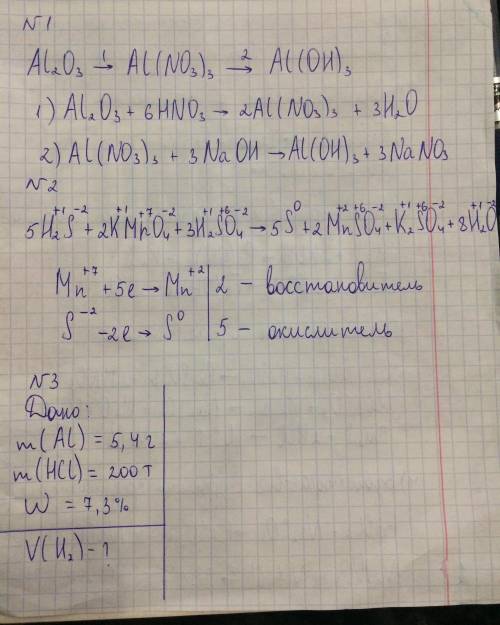 N1
Al₂O₃ →¹ Al(NO₃)₃ →² Al(OH)₃
1) Al₂O₃ + 6HNO₃ → 2Al(NO₃)₃ + 3H₂O
2) Al(NO₃)₃ + 3NaOH → Al(OH)₃ + 3NaNO₃
N2
5H₂⁺¹S⁻² + 2K⁺¹Mn⁺⁷O₄⁻² + 3H₂⁺¹S⁺⁶O₄⁻² → 5S⁰ + 2Mn⁺²S⁺⁶O₄⁻² + K₂⁺¹S⁺⁶O₄⁻² + 8H₂⁺¹O⁻²
Mn⁺⁷ + 5e → Mn⁺² | 2 – восстановитель
S⁻² - 2e → S⁰ | 5 – окислитель
N3
Дано:
m(Al) = 5,4 г
m(HCl) = 200 г
W = 7,3%
V(H₂) - ?